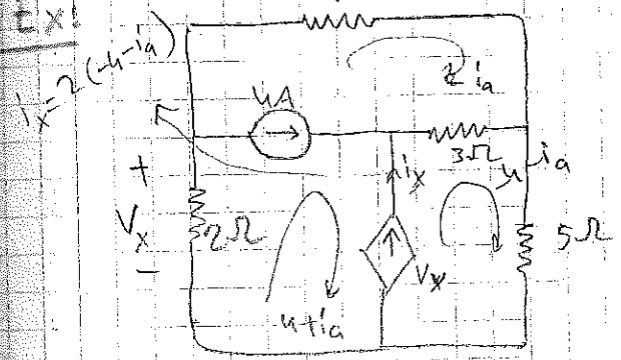 Ex!
ix = 2(-4-ia)
ia
4A
3Ω
ix
4
ia
+
Vx
-
2Ω
5Ω
Vx
4+ia